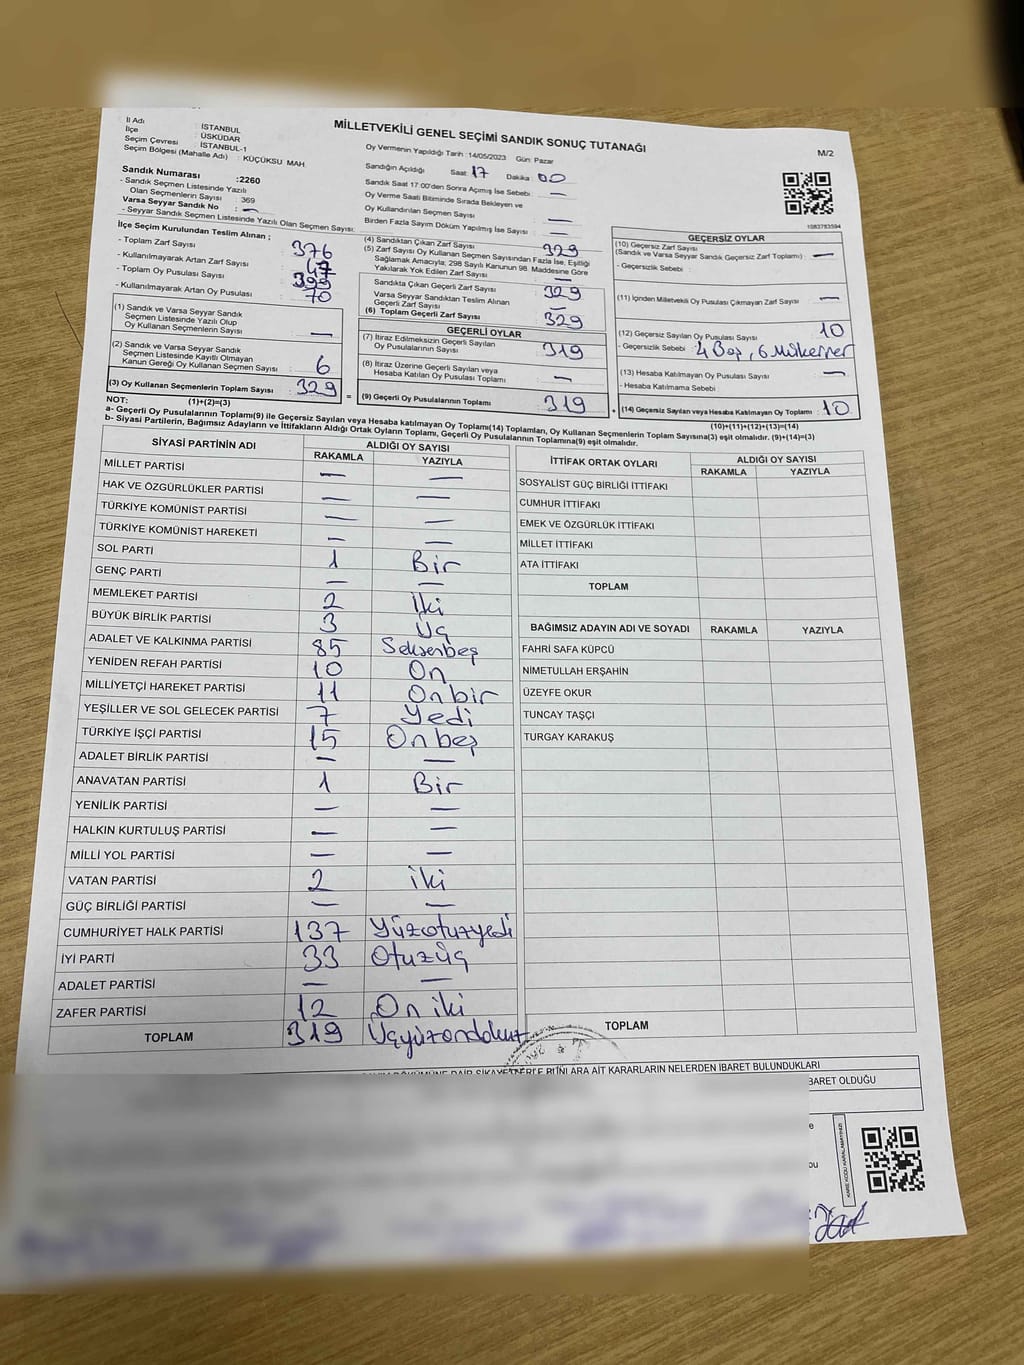 İl Adı : İSTANBUL
İlçe : ÜSKÜDAR
Seçim Çevresi : İSTANBUL-1
Seçim Bölgesi (Mahalle Adı) : KÜÇÜKSU MAH
Sandık Numarası :2260
- Sandık Seçmen Listesinde Yazılı
Olan Seçmenlerin Sayısı : 369
Varsa Seyyar Sandık No : —
- Seyyar Sandık Seçmen Listesinde Yazılı Olan Seçmen Sayısı:
MİLLETVEKİLİ GENEL SEÇİMİ SANDIK SONUÇ TUTANAĞI
M/2
Oy Vermenin Yapıldığı Tarih :14/05/2023 Gün: Pazar
Sandığın Açıldığı Saat 17 Dakika : 00
Sandık Saat 17.00'den Sonra Açımış İse Sebebi : —
Oy Verme Saati Bitiminde Sırada Bekleyen ve
Oy Kullandırılan Seçmen Sayısı : —
Birden Fazla Sayım Döküm Yapılmış İse Sayısı : —
1083783594
İlçe Seçim Kurulundan Teslim Alınan ;
- Toplam Zarf Sayısı : 376
- Kullanılmayarak Artan Zarf Sayısı : 47
- Toplam Oy Pusulası Sayısı : 399
- Kullanılmayarak Artan Oy Pusulası : 70
(1) Sandık ve Varsa Seyyar Sandık
Seçmen Listesinde Yazılı Olup
Oy Kullanan Seçmenlerin Sayısı : —
(2) Sandık ve Varsa Seyyar Sandık
Seçmen Listesinde Kayıtlı Olmayan
Kanun Gereği Oy Kullanan Seçmen Sayısı : 6
(3) Oy Kullanan Seçmenlerin Toplam Sayısı : 329 =
(4) Sandıktan Çıkan Zarf Sayısı : 329
(5) Zarf Sayısı Oy Kullanan Seçmen Sayısından Fazla İse, Eşitliği
Sağlamak Amacıyla; 298 Sayılı Kanunun 98. Maddesine Göre
Yakılarak Yok Edilen Zarf Sayısı : —
Sandıkta Çıkan Geçerli Zarf Sayısı : 329
Varsa Seyyar Sandıktan Teslim Alınan
Geçerli Zarf Sayısı : —
(6) Toplam Geçerli Zarf Sayısı : 329
GEÇERLİ OYLAR
(7) İtiraz Edilmeksizin Geçerli Sayılan
Oy Pusulalarının Sayısı : 319
(8) İtiraz Üzerine Geçerli Sayılan veya
Hesaba Katılan Oy Pusulası Toplamı : —
(9) Geçerli Oy Pusulalarının Toplamı : 319 +
GEÇERSİZ OYLAR
(10) Geçersiz Zarf Sayısı
(Sandık ve Varsa Seyyar Sandık Geçersiz Zarf Toplamı) : —
- Geçersizlik Sebebi :
(11) İçinden Milletvekili Oy Pusulası Çıkmayan Zarf Sayısı : —
(12) Geçersiz Sayılan Oy Pusulası Sayısı : 10
- Geçersizlik Sebebi : 4 Boş, 6 Mükerrer
(13) Hesaba Katılmayan Oy Pusulası Sayısı : —
- Hesaba Katılmama Sebebi :
(14) Geçersiz Sayılan veya Hesaba Katılmayan Oy Toplamı : 10
NOT: (1)+(2)=(3) (10)+(11)+(12)+(13)=(14)
a- Geçerli Oy Pusulalarının Toplamı(9) ile Geçersiz Sayılan veya Hesaba katılmayan Oy Toplamı(14) Toplamları, Oy Kullanan Seçmenlerin Toplam Sayısına(3) eşit olmalıdır. (9)+(14)=(3)
b- Siyasi Partilerin, Bağımsız Adayların ve İttifakların Aldığı Ortak Oyların Toplamı, Geçerli Oy Pusulalarının Toplamına(9) eşit olmalıdır.
SİYASİ PARTİNİN ADI ALDIĞI OY SAYISI
RAKAMLA YAZIYLA
MİLLET PARTİSİ — —
HAK VE ÖZGÜRLÜKLER PARTİSİ — —
TÜRKİYE KOMÜNİST PARTİSİ — —
TÜRKİYE KOMÜNİST HAREKETİ — —
SOL PARTİ 1 Bir
GENÇ PARTİ — —
MEMLEKET PARTİSİ 2 İki
BÜYÜK BİRLİK PARTİSİ 3 Üç
ADALET VE KALKINMA PARTİSİ 85 Seksenbeş
YENİDEN REFAH PARTİSİ 10 On
MİLLİYETÇİ HAREKET PARTİSİ 11 Onbir
YEŞİLLER VE SOL GELECEK PARTİSİ 7 Yedi
TÜRKİYE İŞÇİ PARTİSİ 15 Onbeş
ADALET BİRLİK PARTİSİ — —
ANAVATAN PARTİSİ 1 Bir
YENİLİK PARTİSİ — —
HALKIN KURTULUŞ PARTİSİ — —
MİLLİ YOL PARTİSİ — —
VATAN PARTİSİ 2 iki
GÜÇ BİRLİĞİ PARTİSİ — —
CUMHURİYET HALK PARTİSİ 137 Yüzotuzyedi
İYİ PARTİ 33 Otuzüç
ADALET PARTİSİ — —
ZAFER PARTİSİ 12 On iki
TOPLAM 319 Üçyüzondokuz
İTTİFAK ORTAK OYLARI ALDIĞI OY SAYISI
RAKAMLA YAZIYLA
SOSYALİST GÜÇ BİRLİĞİ İTTİFAKI
CUMHUR İTTİFAKI
EMEK VE ÖZGÜRLÜK İTTİFAKI
MİLLET İTTİFAKI
ATA İTTİFAKI
TOPLAM
BAĞIMSIZ ADAYIN ADI VE SOYADI RAKAMLA YAZIYLA
FAHRİ SAFA KÜPCÜ
NİMETULLAH ERŞAHİN
ÜZEYFE OKUR
TUNCAY TAŞÇI
TURGAY KARAKUŞ
TOPLAM
DÖKÜMÜNE DAİR ŞİKAYETLERLE BUNLARA AİT KARARLARIN NELERDEN İBARET BULUNDUKLARI
BARET OLDUĞU
KARE KODU KARALAMAYINIZ!